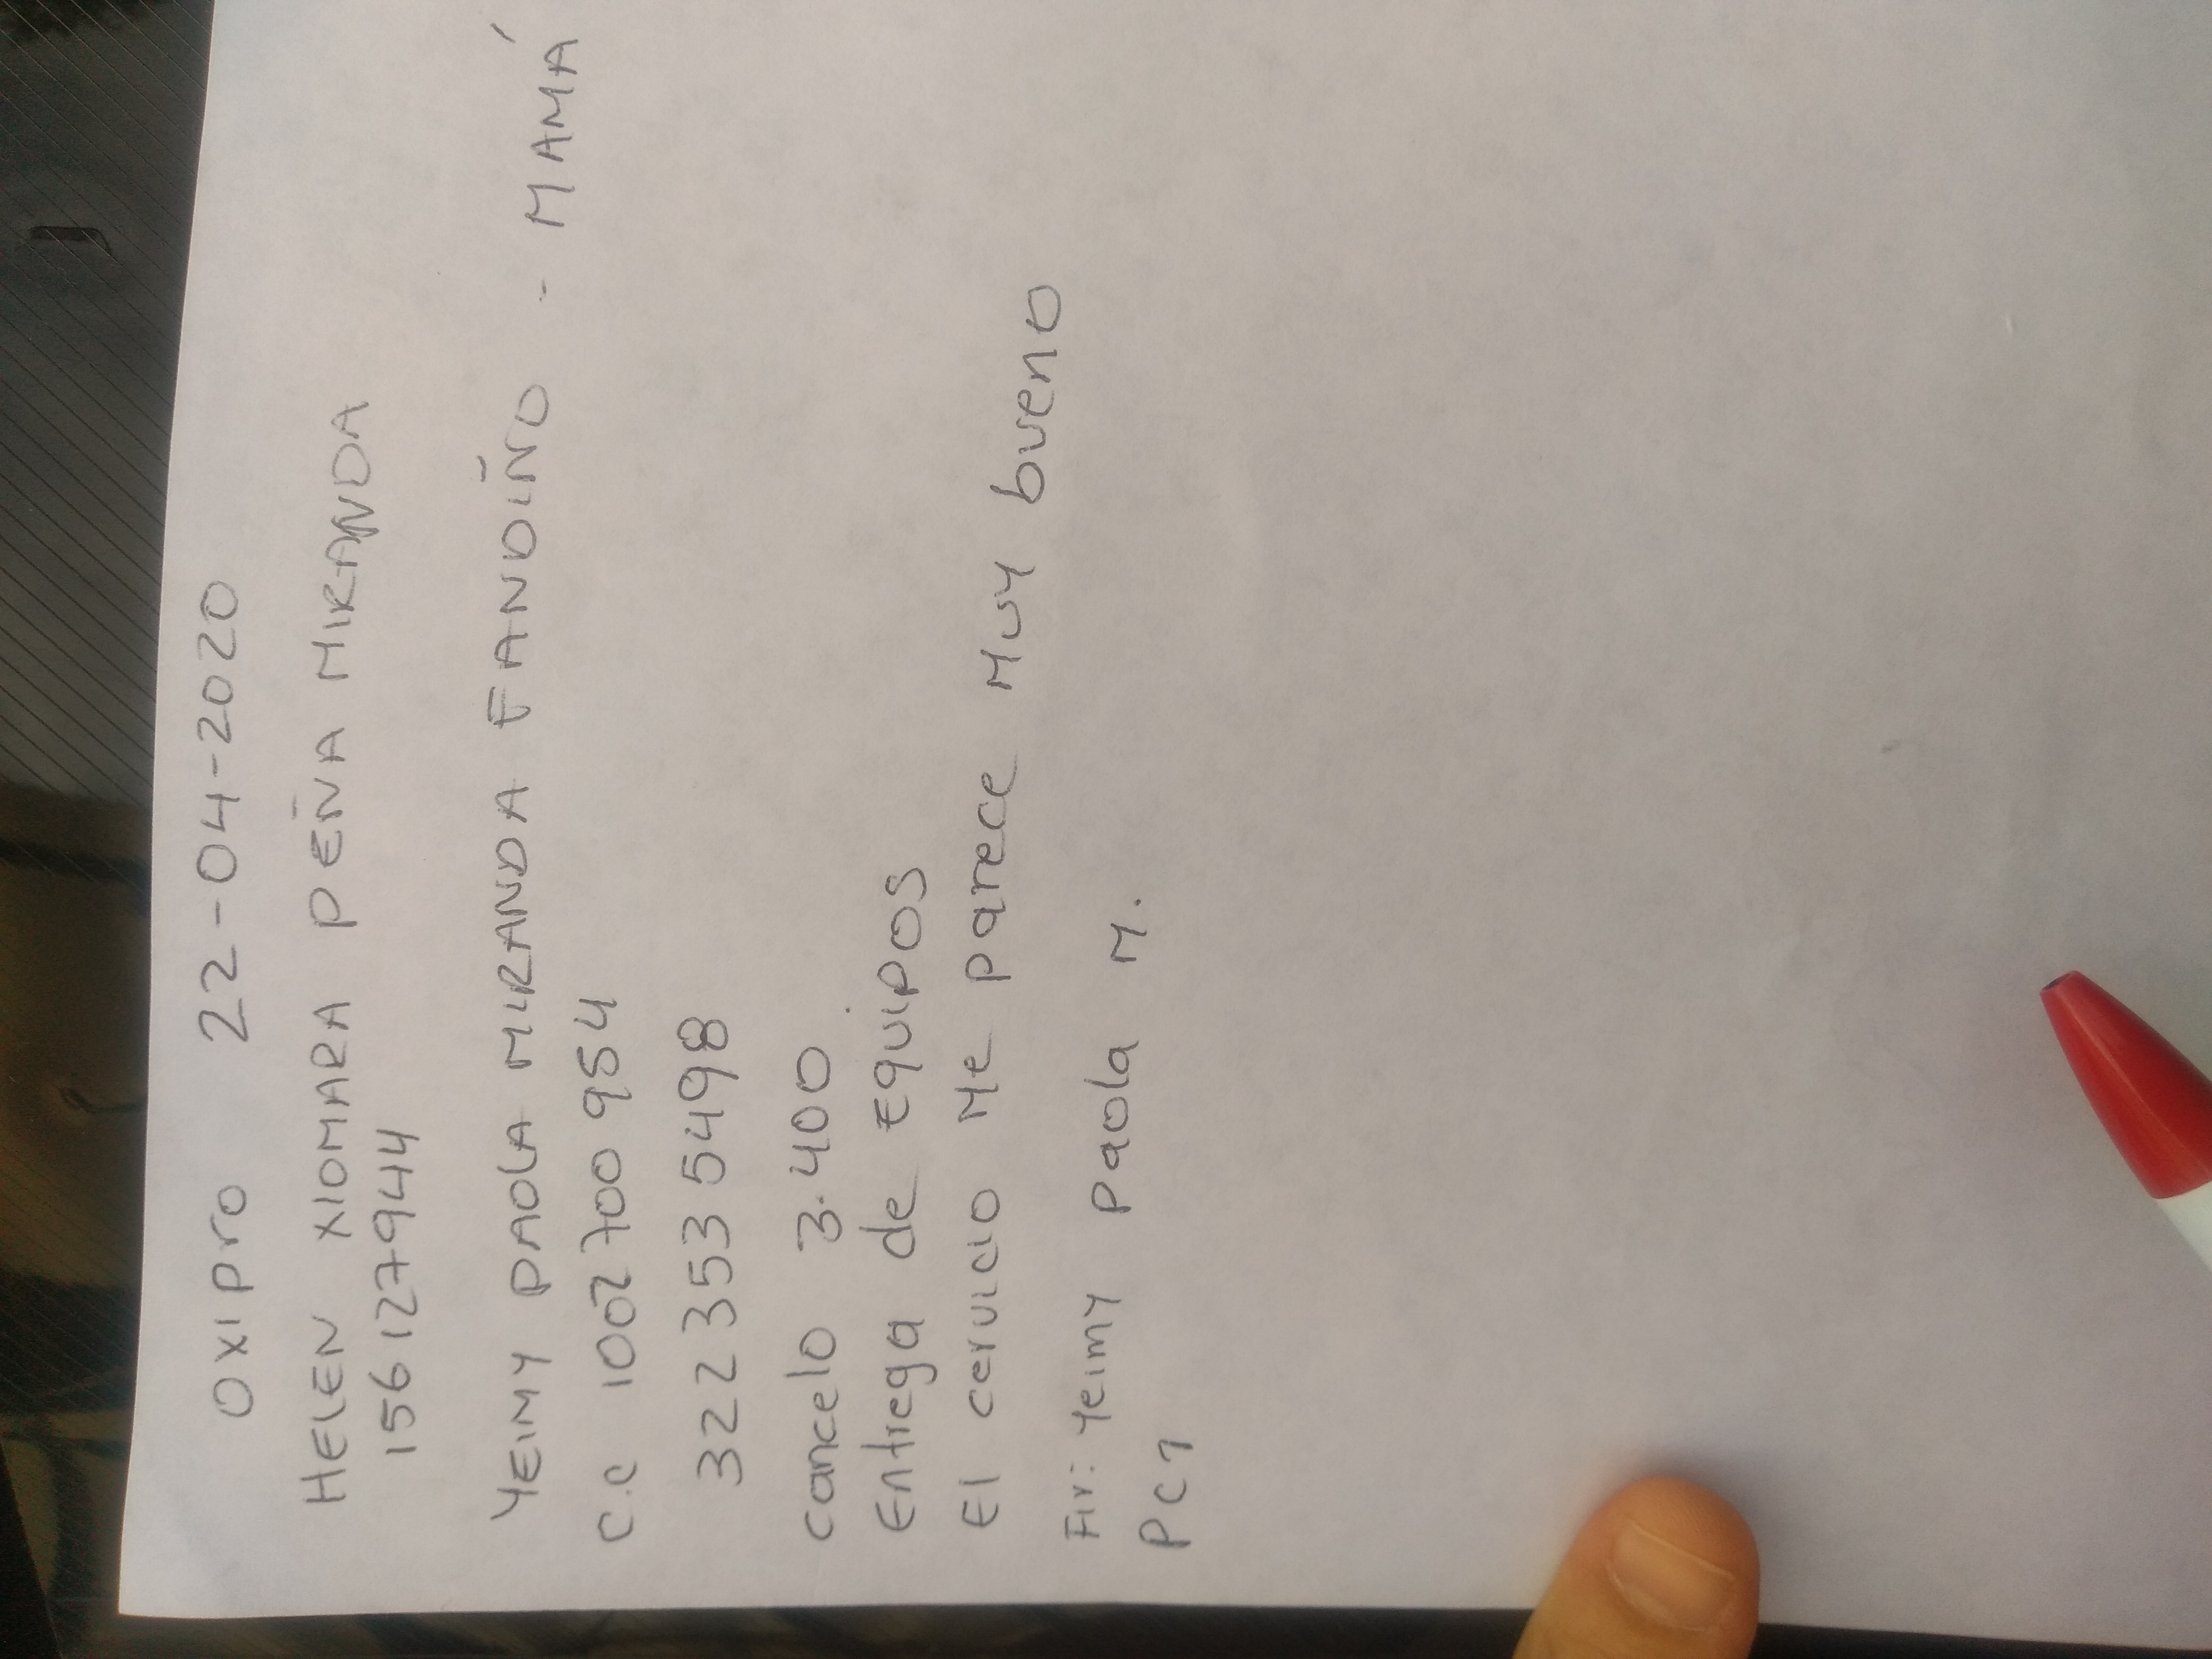 OXIPro 22-04-2020
HELEN XIOMARA PEÑA MIRANDA
1561279444
YEIMY PAOLA MIRANDA FANDIÑO - MAMÁ
C.C 1002700954
322 353 5498
cancelo 3.400
Entrega de Equipos
El cervicio Me parece Muy bueno
Fir: Yeimy Paola M.
PC1